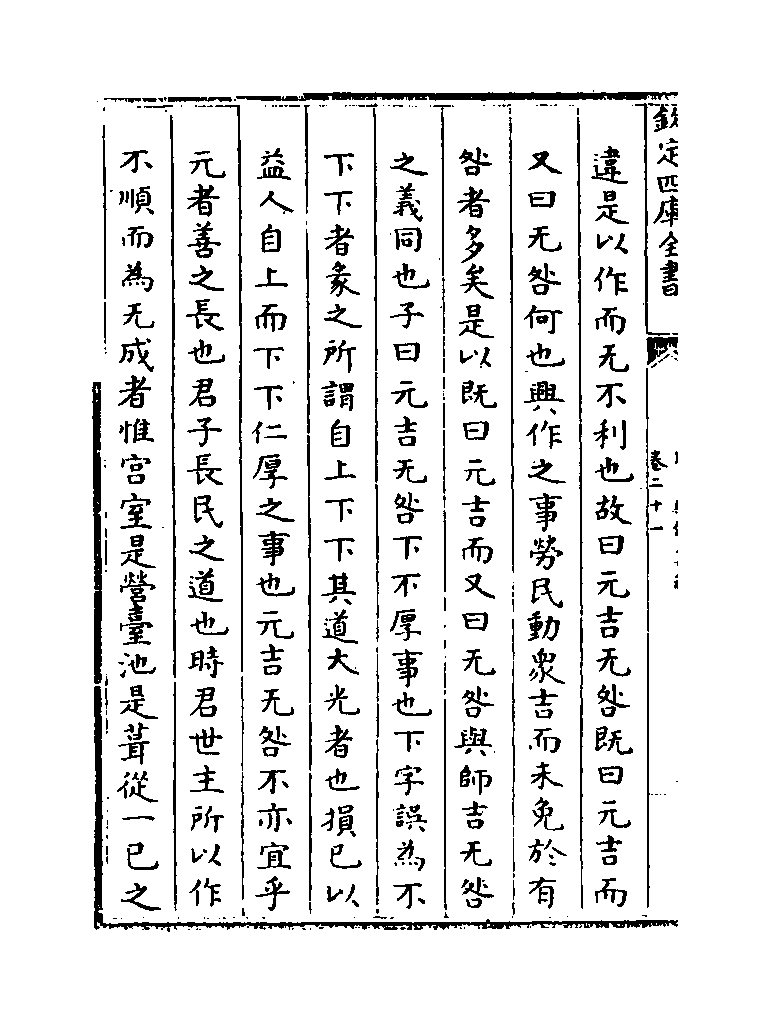 欽定四庫全書
卷二十一
違是以作而无不利也故曰元吉无咎既曰元吉而
又曰无咎何也興作之事勞民動衆吉而未免於有
咎者多矣是以既曰元吉而又曰无咎與師吉无咎
之義同也子曰元吉无咎下不厚事也下字誤為不
下下者彖之所謂自上下下其道大光者也損已以
益人自上而下下仁厚之事也元吉无咎不亦宜乎
元者善之長也君子長民之道也時君世主所以作
不順而為无成者惟宫室是營臺池是葺從一已之